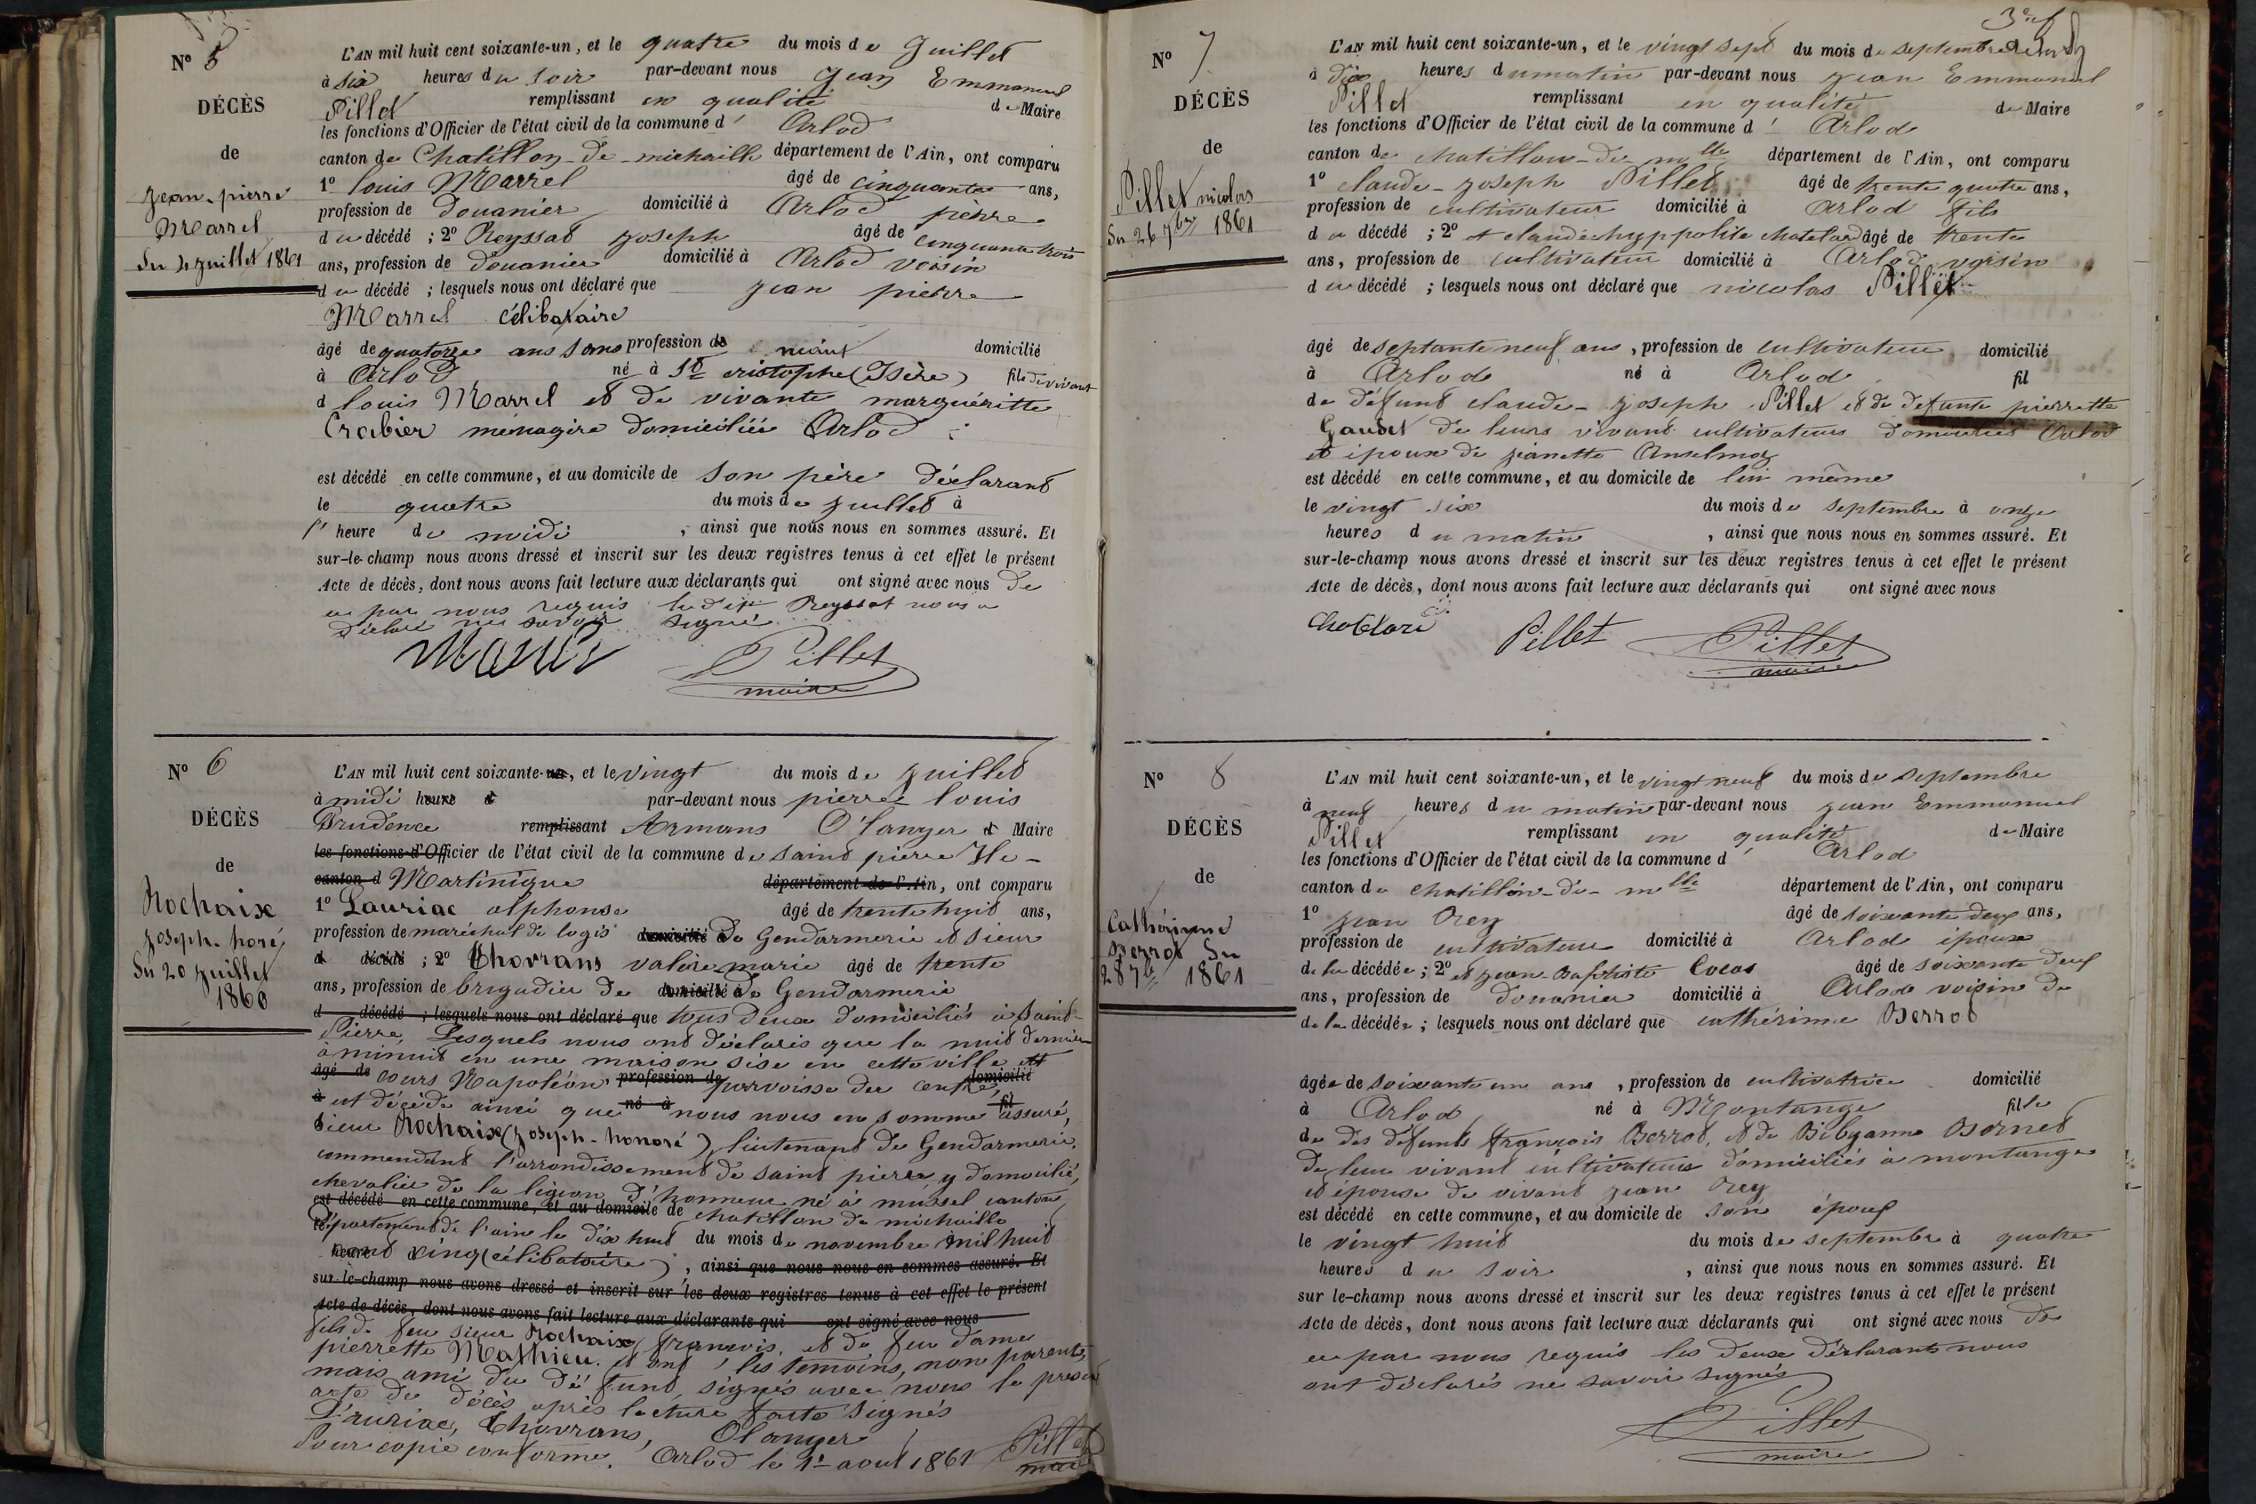 Nº 5
DÉCÈS
de
Jean-pierre
Marrel
Du 4 juillet 1861
L'AN mil huit cent soixante-un, et le quatre du mois de Juillet
à six heures du soir par-devant nous Jean Emmanuel
Pillet remplissant en qualité de Maire
les fonctions d'Officier de l'état civil de la commune d' Arlod
canton de Chatillon-de-michaille département de l'Ain, ont comparu
1º louis Marrel âgé de cinquante ans,
profession de douanier domicilié à Arlod pierre
du décédé ; 2º Reyssat joseph âgé de cinquante trois
ans, profession de douanier domicilié à Arlod voisin
du décédé ; lesquels nous ont déclaré que jean pierre
Marrel célibataire
âgé de quatorze ans sans profession de néant domicilié
à Arlod né à St cristophe (Isère) fils de vivant
d louis Marrel et de vivante marguéritte
Crabier ménagère domiciliée Arlod
est décédé en cette commune, et au domicile de son père déclarant
le quatre du mois de juillet à
heure de midi, ainsi que nous nous en sommes assuré. Et
sur-le-champ nous avons dressé et inscrit sur les deux registres tenus à cet effet le présent
Acte de décès, dont nous avons fait lecture aux déclarants qui ont signé avec nous de
ce par nous requis le dit Reyssat nous a
déclaré ne savoir signé
Pillet
maire
Nº 6
DÉCÈS
de
Rochaix
joseph-honoré
Du 20 juillet
1860
L'AN mil huit cent soixante-un, et le vingt du mois de juillet
à midi heure d par-devant nous pierre louis
Prudence remplissant Armans O'lanyer d Maire
les fonctions d'Officier de l'état civil de la commune de saint pierre Ile-
canton d Martinique département de l'Ain, ont comparu
1º Lauriac alphonse âgé de trente huit ans,
profession de maréchal de logis domicilié De Gendarmerie et sieur
d décédé ; 2º Thovrans valère marie âgé de trente
ans, profession de brigadier de domicilié à De Gendarmerie
d décédé ; lesquels nous ont déclaré que tous deux domiciliés à Saint-
Pierre, Lesquels nous ont déclarés que la nuit dernière
à minuit en une maison sise en cette ville et
âgé de cours Napoléon profession de parroisse du centre, domicilié
à est décédé ainsi que né à nous nous en somme assuré, fil
sieur Rochaix (joseph-honoré), lieutenant de Gendarmerie,
commendant l'arrondissement de saint pierre y domicilié,
chevalier de la légion d'honneur né à mussel canton
est décédé en cette commune, et au domicile de chatillon de michaille
Département de l'ain le dix huit du mois de novembre mil huit
heure cent vingt (célibataire), ainsi que nous nous en sommes assuré. Et
sur-le-champ nous avons dressé et inscrit sur les deux registres tenus à cet effet le présent
Acte de décès, dont nous avons fait lecture aux déclarants qui ont signé avec nous
fils de feu sieur Rochaix françois, et de feu dame
pierrette Mathieu. et ont les temoins, non parents,
mais ami du défunt, signés avec nous le présent
acte de décès après lecture faite signés
Lauriac, Thovrans, Olanyer
Pour copie conforme. Arlod le 1er aout 1861 Pillet
maire
3e
Nº 7
DÉCÈS
de
Pillet nicolas
Du 26 7bre 1861
L'AN mil huit cent soixante-un, et le vingt sept du mois de septembre
à dix heures du matin par-devant nous jean Emmanuel
Pillet remplissant en qualité de Maire
les fonctions d'Officier de l'état civil de la commune d' Arlod
canton de chatillon-de mlle département de l'Ain, ont comparu
1º claude-joseph Pillet âgé de trente quatre ans,
profession de cultivateur domicilié à Arlod fils
du décédé ; 2º et claude hyppolite chatelard âgé de trente
ans, profession de cultivateur domicilié à Arlod voisin
du décédé ; lesquels nous ont déclaré que nicolas Pillet
âgé de septante neuf ans, profession de cultivateur domicilié
à Arlod né à Arlod fil
de défunt claude-joseph Pillet et de défunte pierrette
Gaudet de leurs vivant cultivateurs domiciliés Arlod
et époux de jeanette Anselmoz
est décédé en cette commune, et au domicile de lui même
le vingt six du mois de septembre à onze
heures du matin, ainsi que nous nous en sommes assuré. Et
sur-le-champ nous avons dressé et inscrit sur les deux registres tenus à cet effet le présent
Acte de décès, dont nous avons fait lecture aux déclarants qui ont signé avec nous
Pillet Pillet
maire
Nº 8
DÉCÈS
de
Cathérinne
Berrod Du
28 7bre 1861
L'AN mil huit cent soixante-un, et le vingt neuf du mois de septembre
à neuf heures du matin par-devant nous jean Emmanuel
Pillet remplissant en qualité de Maire
les fonctions d'Officier de l'état civil de la commune d' Arlod
canton de chatillon-de-mlle département de l'Ain, ont comparu
1º jean Rey âgé de soixante deux ans,
profession de cultivateur domicilié à Arlod époux
de la décédée ; 2º et jean baptiste Cocas âgé de soixante deux
ans, profession de douanier domicilié à Arlod voisin de
de la décédée ; lesquels nous ont déclaré que cathérinne Berrod
âgée de soixante un ans, profession de cultivatrice domicilié
à Arlod né à Montange fille
de des défunts françois Berrod, et de Bibyanne Bornet
de leur vivant cultivateurs domiciliés à montange
et épouse de vivant jean Rey
est décédé en cette commune, et au domicile de son époux
le vingt huit du mois de septembre à quatre
heures du soir, ainsi que nous nous en sommes assuré. Et
sur le-champ nous avons dressé et inscrit sur les deux registres tenus à cet effet le présent
Acte de décès, dont nous avons fait lecture aux déclarants qui ont signé avec nous de
ce par nous requis les deux déclarants nous
ont déclarés ne savoir signés
Pillet
maire